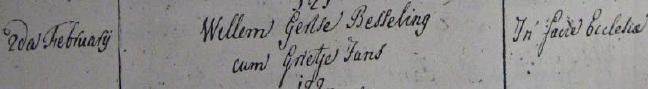 2da Februarij
Willem Geritse Besseling
cum Grietje Jans
In facie Ecclesiæ